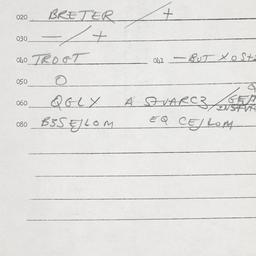 020 BRETER / +
030 — / +
040 TROGT 042 — BUT X O St
050 O
060 QGLY A SZVARCZ /
080 BSSEJLOM EQ CEJLOM